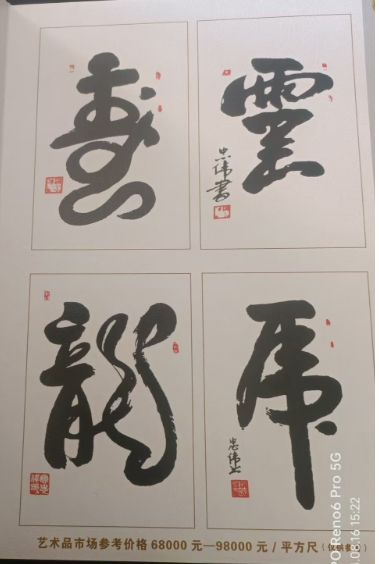 壽
忠偉書
龍
虎
忠偉
艺术品市场参考价格 68000 元—98000 元 / 平方尺（仅供参考）
PO Reno6 Pro 5G
.16 15:22